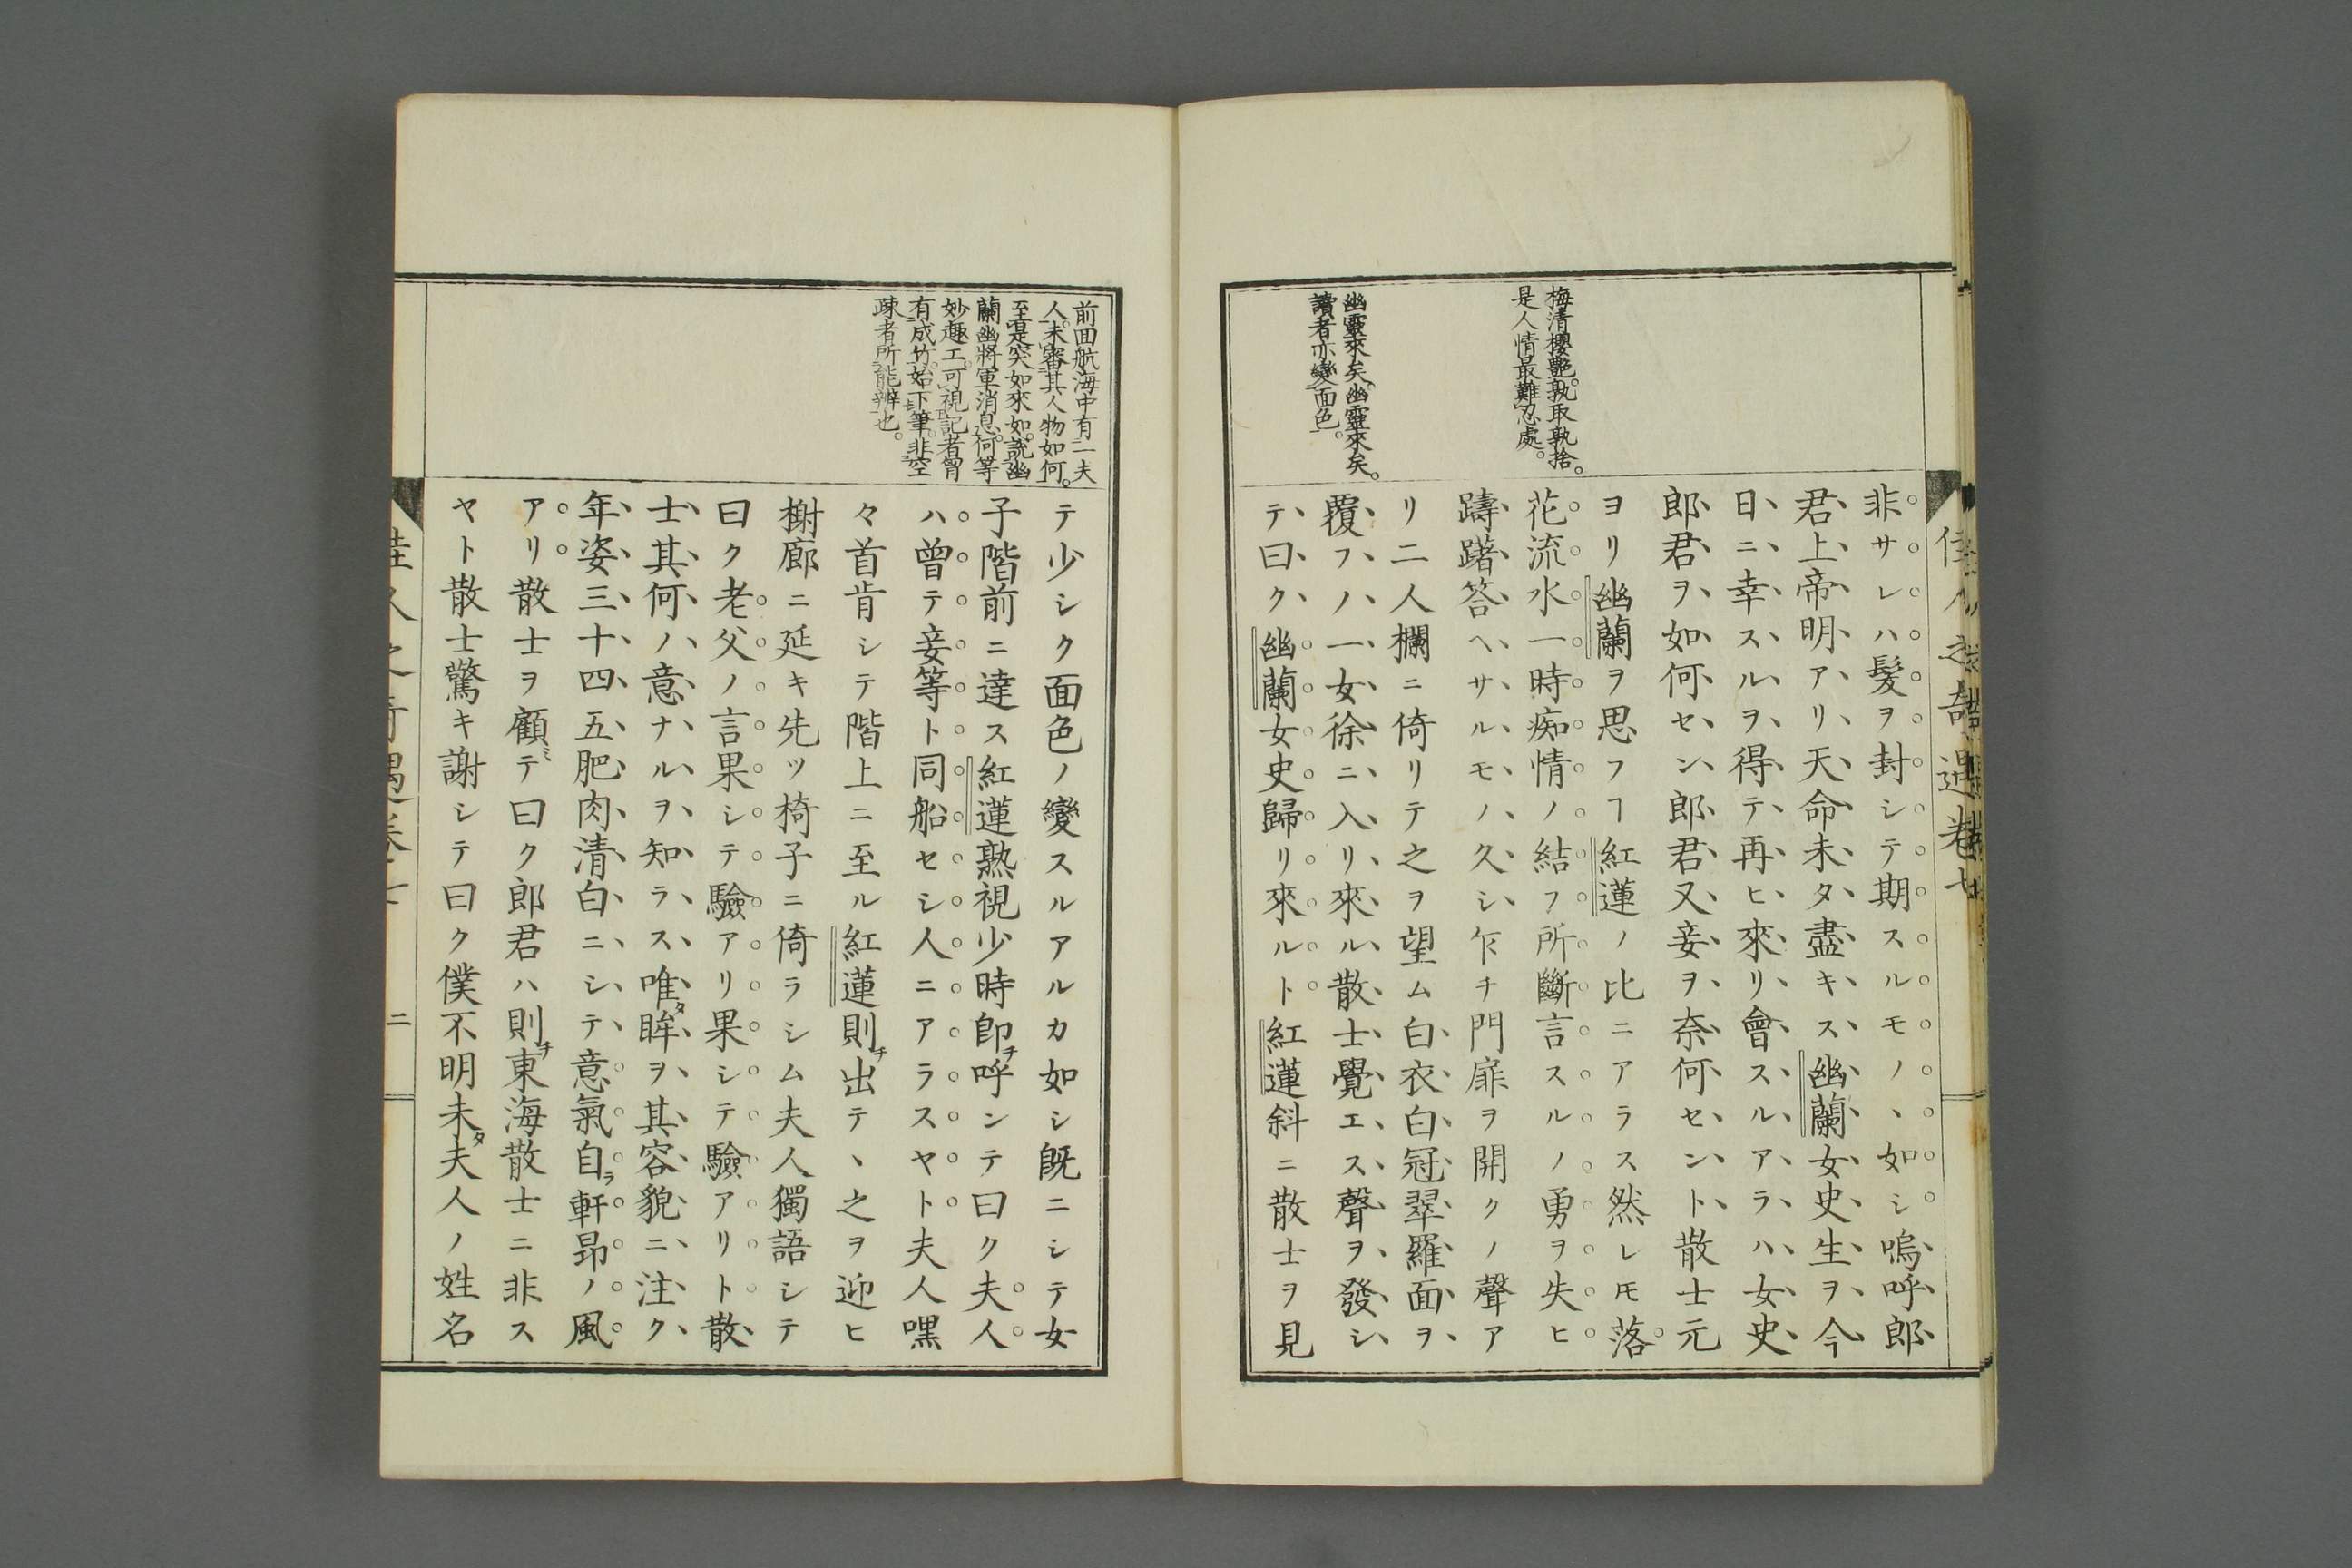 佳人之奇遇卷七
梅清櫻艷。孰取孰捨。
是人情最難忍處。
幽靈來矣。幽靈來矣。
讀者亦變面色。
非サレハ髮ヲ封シテ期スルモノヽ如シ嗚呼郎
君上帝明アリ天命未タ盡キス幽蘭女史生ヲ今
日ニ幸スルヲ得テ再ヒ來リ會スルアラハ女史
郎君ヲ如何セン郎君又妾ヲ奈何セント散士元
ヨリ幽蘭ヲ思フヿ紅蓮ノ比ニアラス然レ𪜈落
花流水一時痴情ノ結フ所斷言スルノ勇ヲ失ヒ
躊躇答ヘサルモノ久シ乍チ門扉ヲ開クノ聲ア
リ二人欄ニ倚リテ之ヲ望ム白衣白冠翠羅面ヲ
覆フノ一女徐ニ入リ來ル散士覺エス聲ヲ發シ
テ曰ク幽蘭女史歸リ來ルト紅蓮斜ニ散士ヲ見
前面航海中有一夫
人。未審其人物如何。
至是突如來如。說幽
蘭幽將軍消息。何等
妙趣工。可視記者胷
有成竹。始下筆。非空
疎者所能辨也。
テ少シク面色ノ變スルアルカ如シ既ニシテ女
子階前ニ達ス紅蓮熟視少時卽チ呼ンテ曰ク夫人
ハ曾テ妾等ト同船セシ人ニアラスヤト夫人嘿
々首肯シテ階上ニ至ル紅蓮則チ出テヽ之ヲ迎ヒ
榭廊ニ延キ先ツ椅子ニ倚ラシム夫人獨語シテ
曰ク老父ノ言果シテ驗アリ果シテ驗アリト散
士其何ノ意ナルヲ知ラス唯タ眸ヲ其容貌ニ注ク
年姿三十四五肥肉清白ニシテ意氣自ラ軒昂ノ風
アリ散士ヲ顧ミテ曰ク郎君ハ則チ東海散士ニ非ス
ヤト散士驚キ謝シテ曰ク僕不明未タ夫人ノ姓名
佳人之奇遇卷七
二